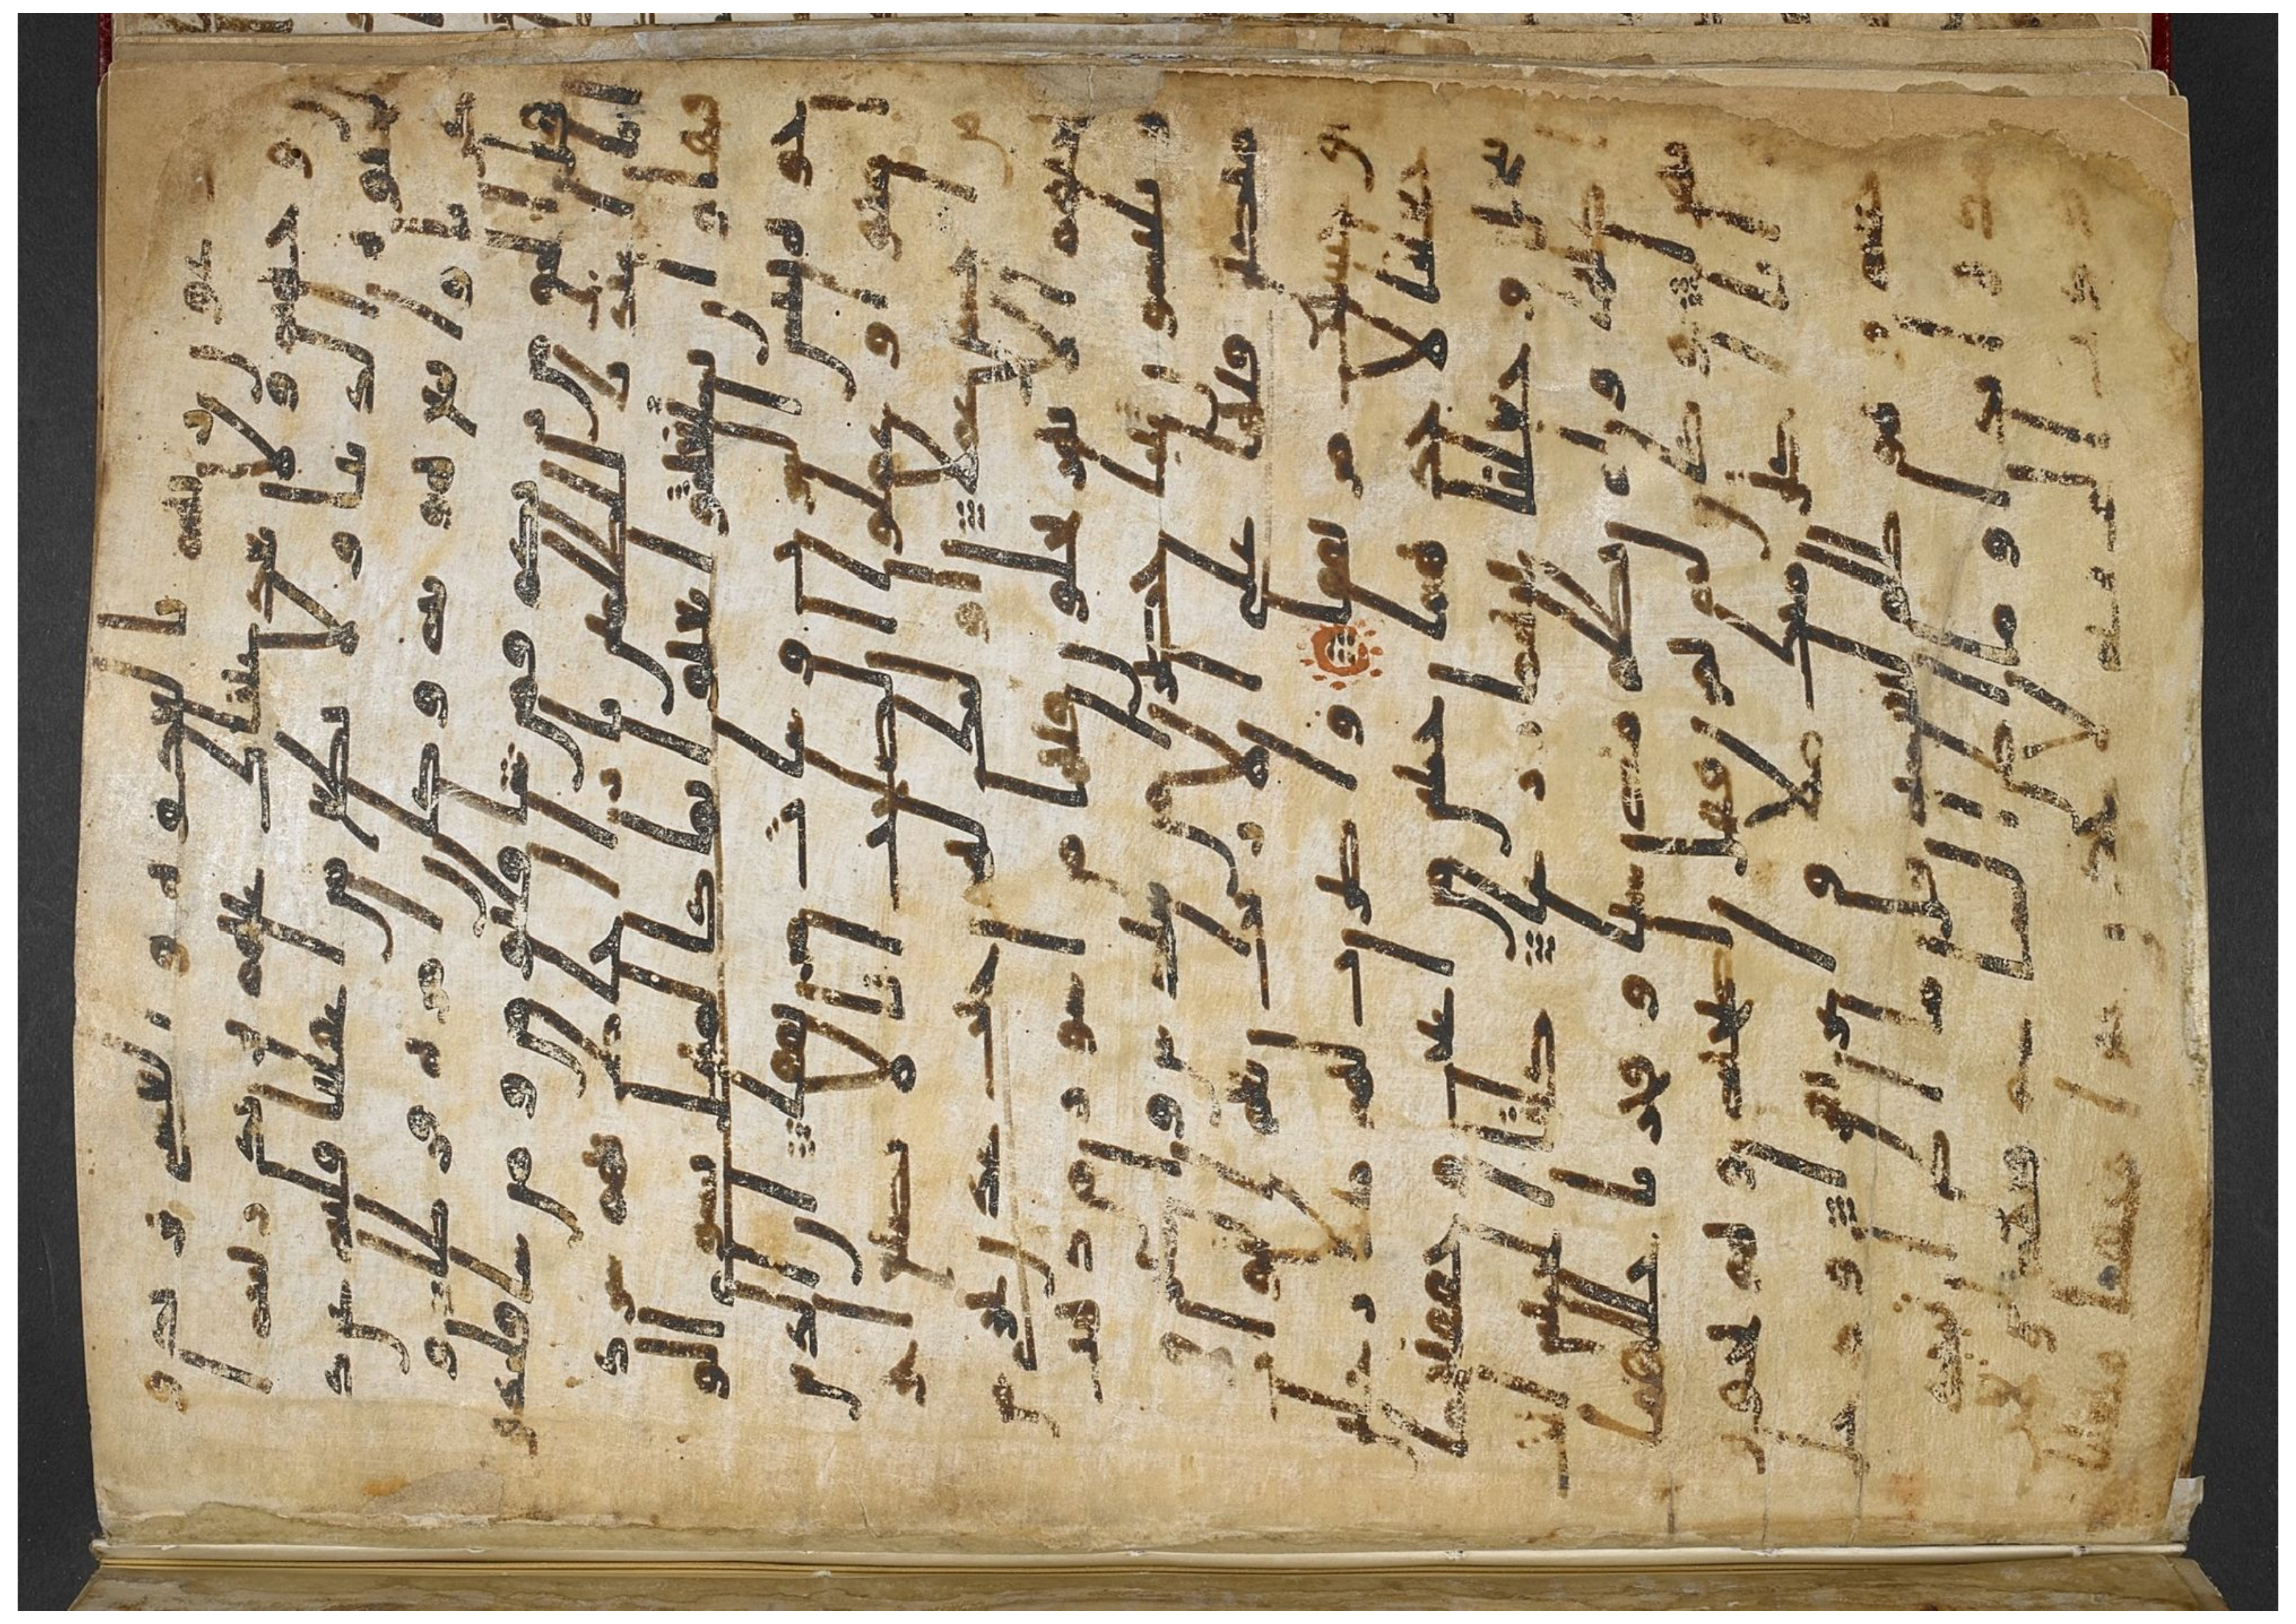 عون ربهم بالغدوه والعشى يريد
ون وجهه ولا تعد عينك عنهم تريد ز
ينه الحيوه الدنيا ولا تطع من اغفلنا قلبه عن ذ
كرنا واتبع هويه وكان امره فرطا و
قل الحق من ربكم فمن شا فليومن ومن شا فليكفر
انا اعتدنا للظلمين نارا احاط بهم سرد
قها وان يستغيثوا يغاثوا بما كالمهل يشوى الو
جوه بيس الشراب وسات مرتفقا ان الذين
امنوا وعملوا الصلحت انا لا نضيع اجر
من احسن عملا اوليك لهم جنت عدن تجرى
من تحتهم الانهر يحلون فيها من اساور من ذهب
ويلبسون ثيابا خضرا من سندس واستبرق
متكين فيها على الاريك نعم الثواب و
حسنت مرتفقا واضرب لهم مثلا رجلين
جعلنا لاحدهما جنتين من اعنب وحففنهما
بنخل وجعلنا بينهما زرعا كلتا الجنتين ا
تت اكلها ولم تظلم منه شيا وفجرنا خللهما
نهرا وكان له ثمر فقال لصحبه وهو يحور
ه انا اكثر منك مالا واعز نفرا ودخل
جنته وهو ظلم لنفسه قال ما اظن ان تبيد
هذه ابدا وما اظن الساعه قيمه ولين ر
ددت الى ربى لاجدن خيرا منها منقلبا